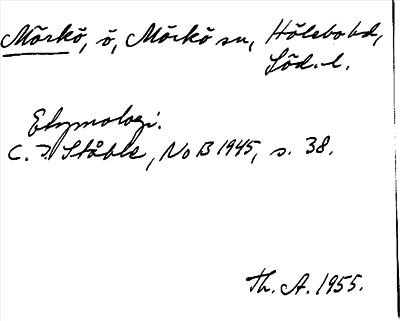 Mörkö, ö, Mörkö sn, Hölebo hd,
Söd. l.
Etymologi.
C. I. Ståhle, NoB 1945, s. 38.
Th. A. 1955.